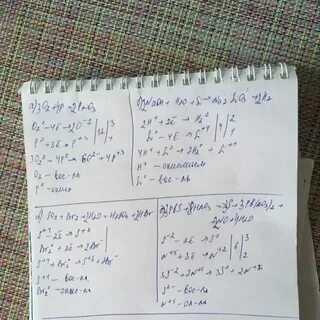 а) 3O₂ + 4P → 2P₂O₃
O₂⁰ - 4ē → 2O⁻² | 12 | 3
P⁰ + 3ē → P⁺³ | 1
3O₂⁰ + 4P⁰ → 6O⁻² + 4P⁺³
O₂ - вос-ль
P⁰ - окисл
б) 2NaOH + H₂O + Si → Na₂SiO₃ + 2H₂
2H⁺ + 2ē → H₂⁰ | 4 | 2
Si⁰ - 4ē → Si⁺⁴ | 1
4H⁺ + Si⁰ → 2H₂⁰ + Si⁺⁴
H⁺ - окислитель
Si⁰ - вос-ль
в) SO₂ + Br₂ + 2H₂O → H₂SO₄ + 2HBr
S⁺⁴ - 2ē → S⁺⁶
Br₂⁰ + 2ē → 2Br⁻
S⁺⁴ + Br₂⁰ → S⁺⁶ + 2Br⁻
S⁺⁴ - вос-ль
Br₂⁰ - окис-ль
г) 3PbS + 8HNO₃ → 3S + 3Pb(NO₃)₂ +
2NO + 4H₂O
S⁻² - 2ē → S⁰ | 3
N⁺⁵ + 3ē → N⁺² | 6 | 2
3S⁻² + 2N⁺⁵ → 3S⁰ + 2N⁺²
S² - вос-ль
N⁺⁵ - ок-ль